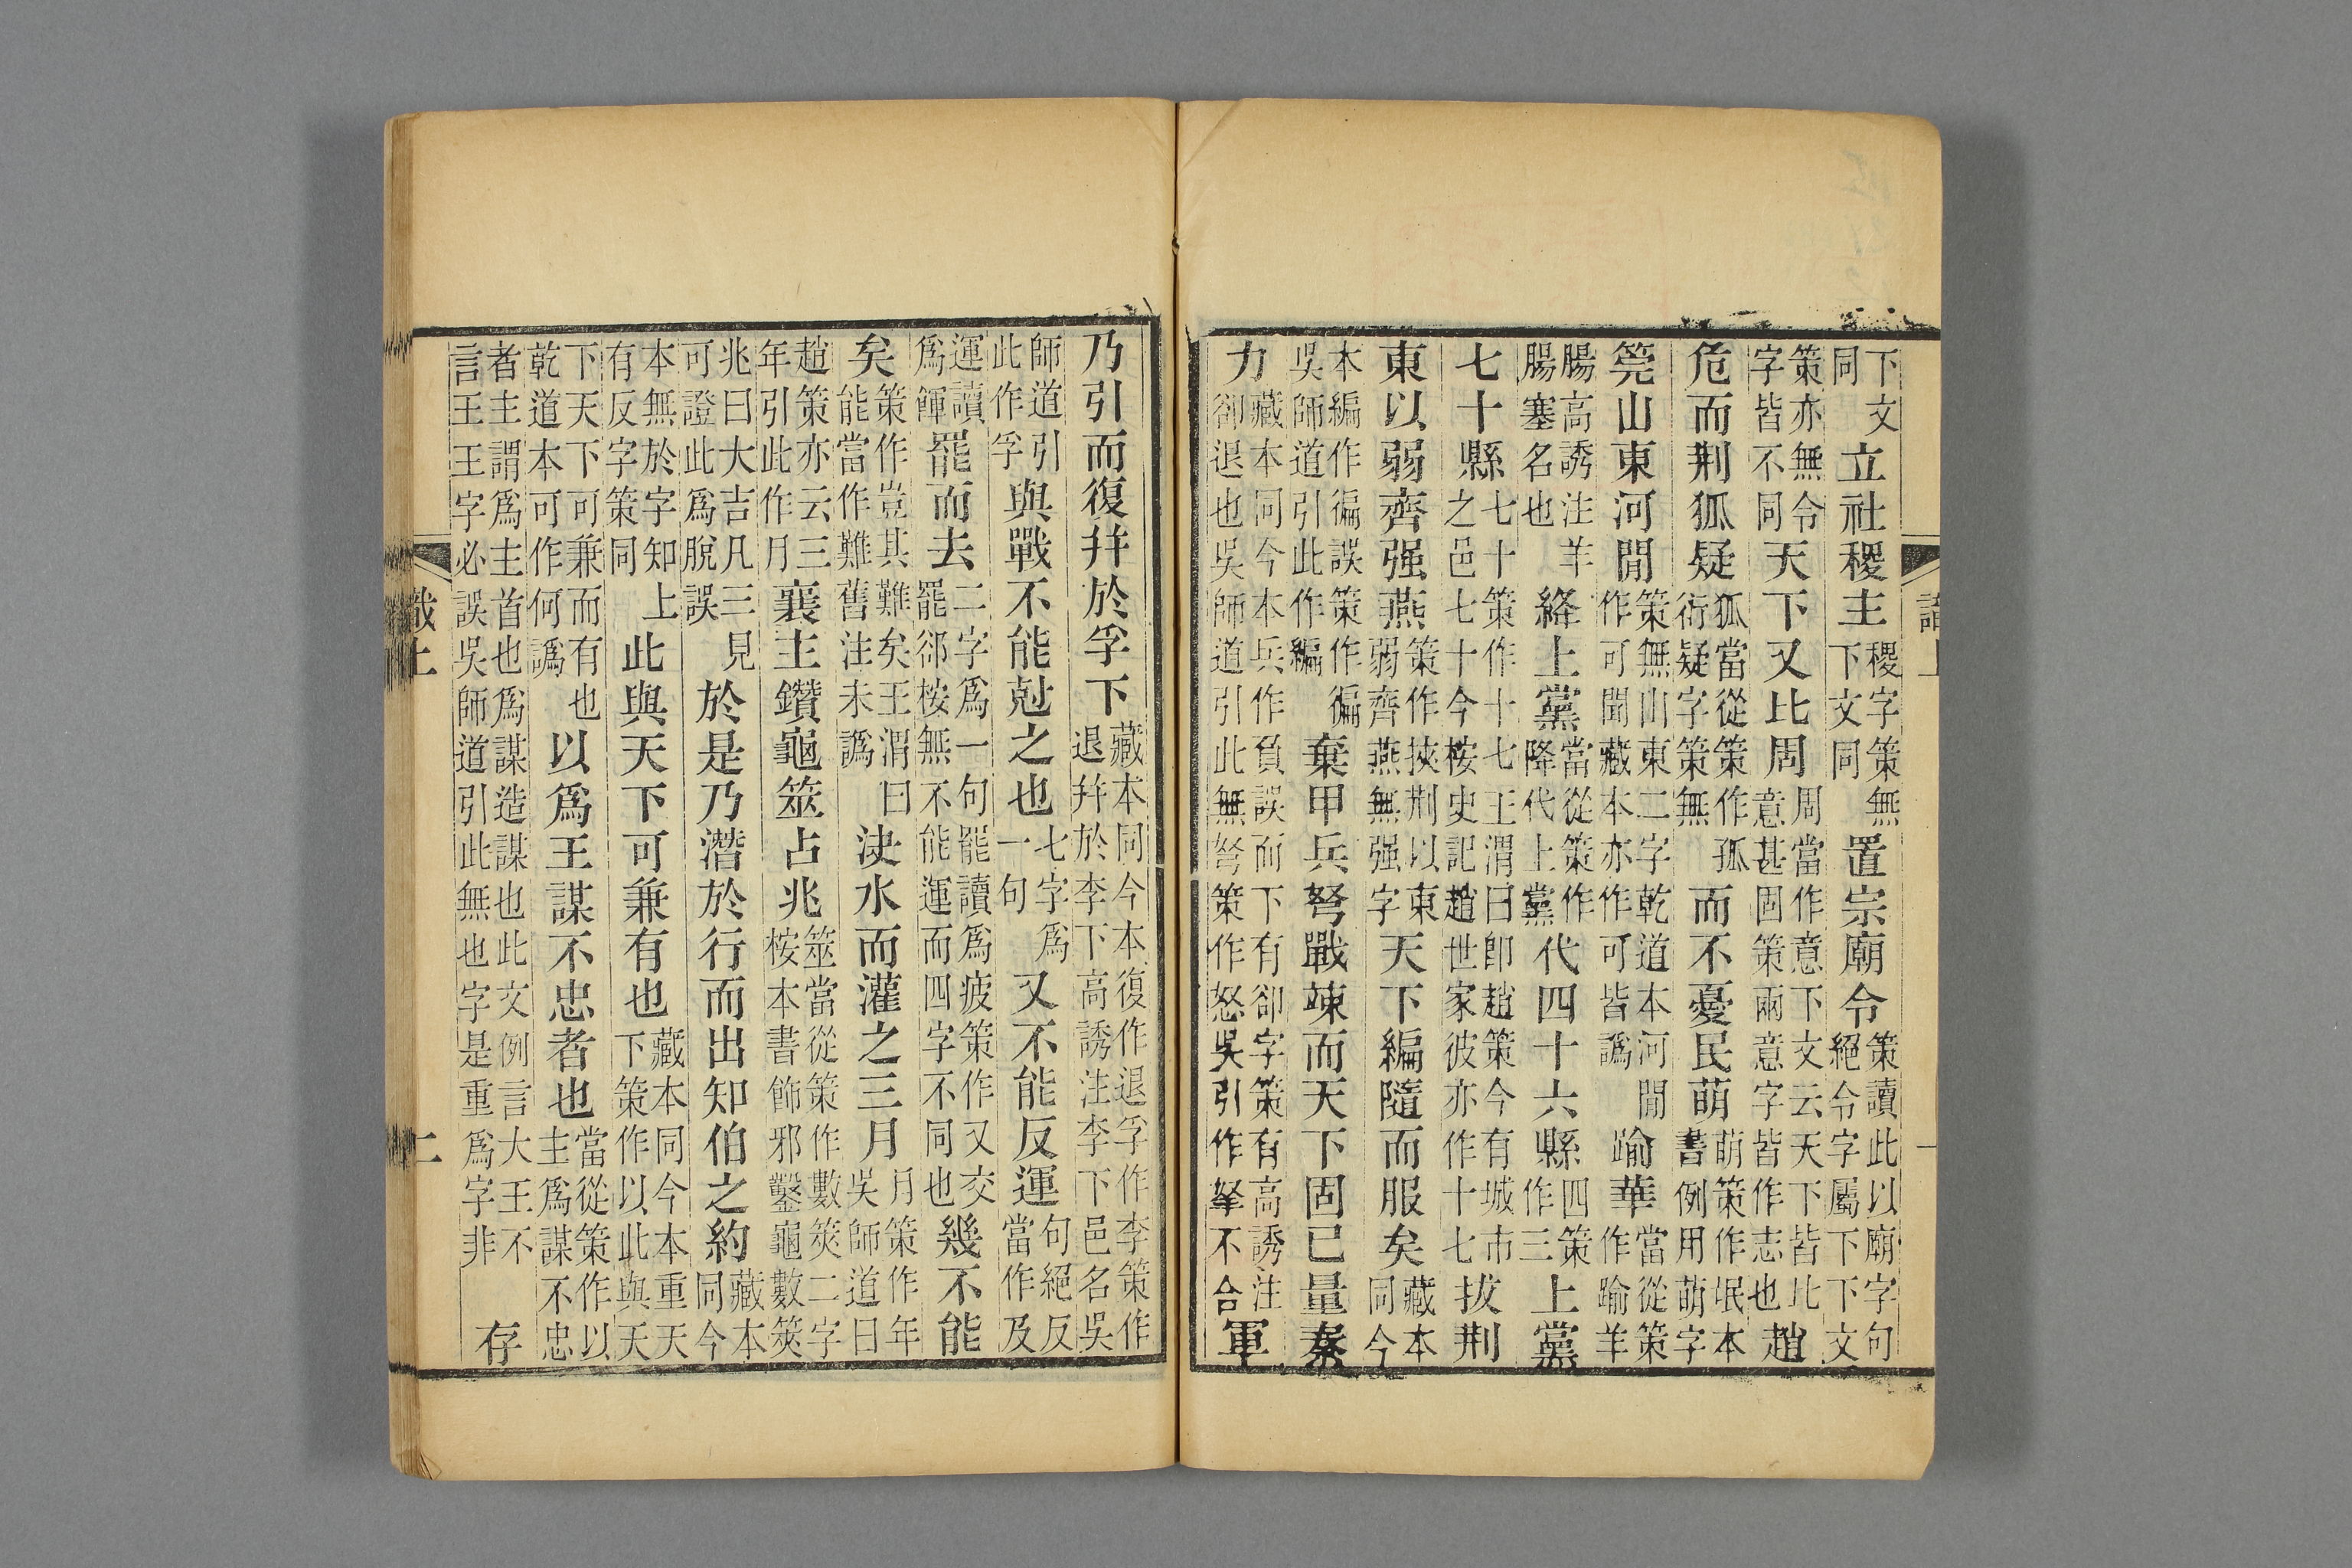 識上 一
下文同立社稷主稷字策無下文同置宗廟令策讀此以廟字句絕令字屬下下文
策亦無令字皆不同天下又比周周當作意下文云天下皆比意甚固策兩意字皆作志也趙
危而荆狐疑狐當從策作孤衍疑字策無而不憂民萌萌策作氓本書例用萌字
筦山東河閒策無山東二字乾道本河閒作可聞藏本亦作可皆譌踰華當從策作踰羊
腸高誘注羊腸塞名也絳上黨當從策作降代上黨代四十六縣四策作三上黨
七十縣七十策作十七王渭曰卽趙策今有城市之邑七十今桉史記趙世家彼亦作十七拔荆
東以弱齊强燕策作挾荆以東弱齊燕無强字天下編隨而服矣藏本同今
本編作徧誤策作徧吳師道引此作編棄甲兵弩戰竦而天下固已量秦
力藏本同今本兵作負誤而下有卻字策有高誘注卻退也吳師道引此無弩策作怒吳引作拏不合軍
乃引而復幷於孚下藏本同今本復作退孚作李策作退幷於李下高誘注李下邑名吳
師道引此作孚與戰不能尅之也七字爲一句又不能反運句絕反當作及
運讀爲餫罷而去二字爲一句罷讀爲疲策作又交罷郤桉無不能運而四字不同也幾不能
矣策作豈其難矣王渭曰能當作難舊注未譌決水而灌之三月月策作年吳師道曰
趙策亦云三年引此作月襄主鑽龜筮占兆筮當從策作數筴二字桉本書飾邪鑿龜數筴
兆曰大吉凡三見可證此爲脫誤於是乃潛於行而出知伯之約藏本同今
本無於字知上有反字策同此與天下可兼有也藏本同今本重天下策作以此與天
下天下可兼而有也乾道本可作何譌以爲王謀不忠者也當從策作以主爲謀不忠
者主謂爲主首也爲謀造謀也此文例言大王不言王王字必誤吳師道引此無也字是重爲字非存
識上 二